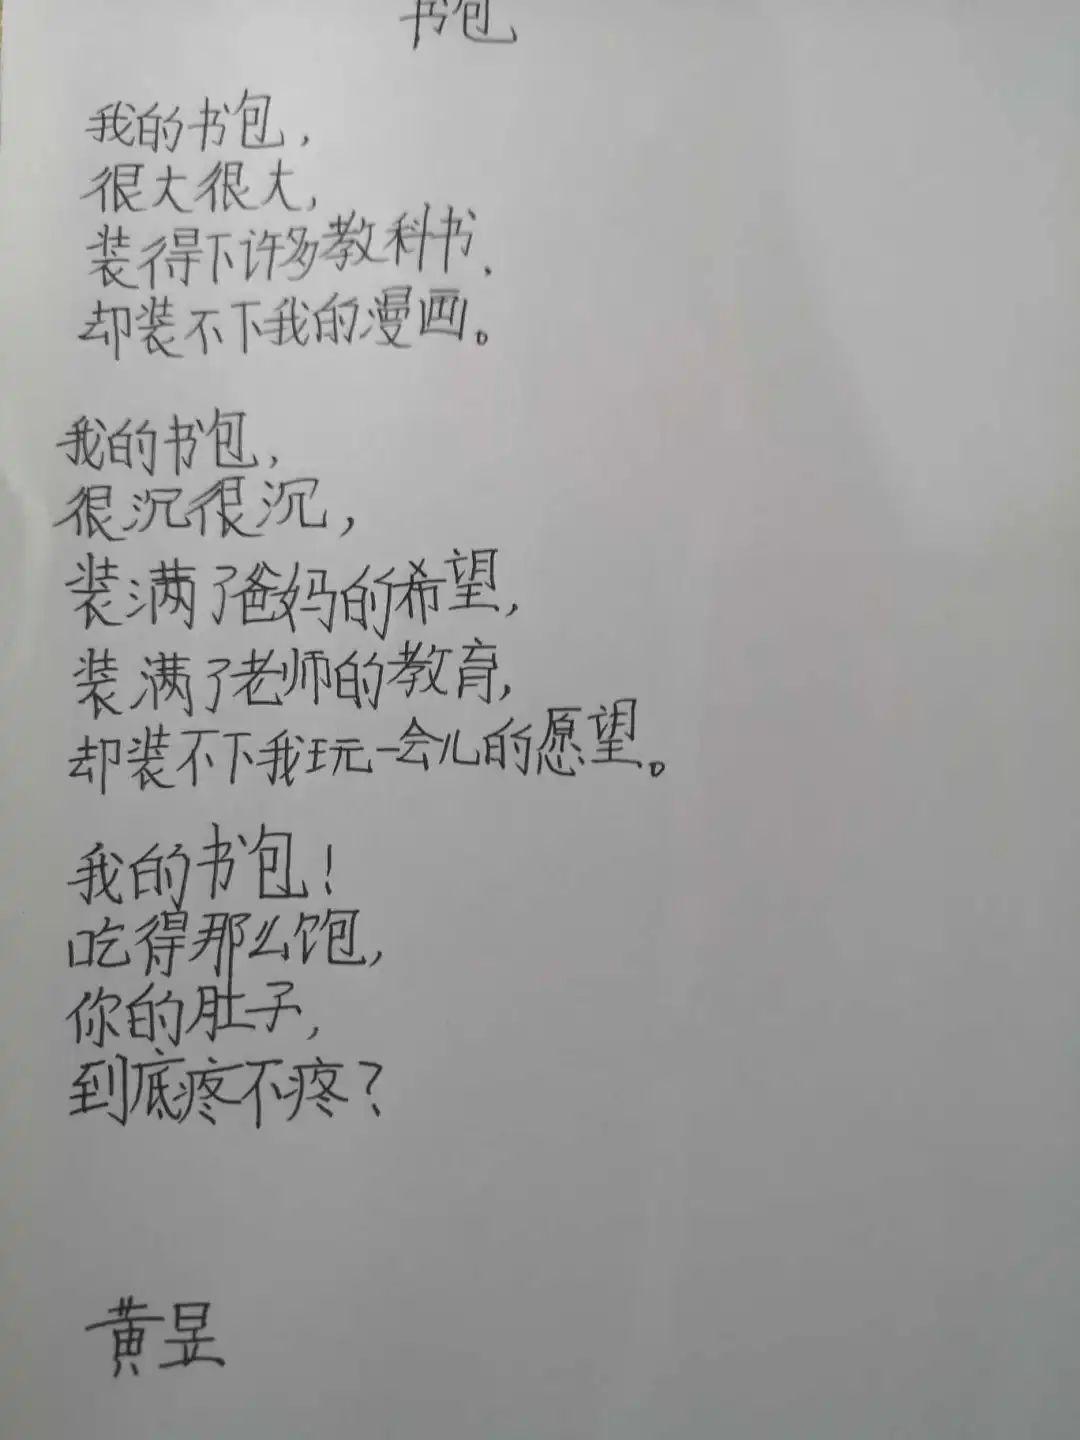 书包
我的书包，
很大很大，
装得下许多教科书，
却装不下我的漫画。
我的书包，
很沉很沉，
装满了爸妈的希望，
装满了老师的教育，
却装不下我玩一会儿的愿望。
我的书包！
吃得那么饱，
你的肚子，
到底疼不疼？
黄昱